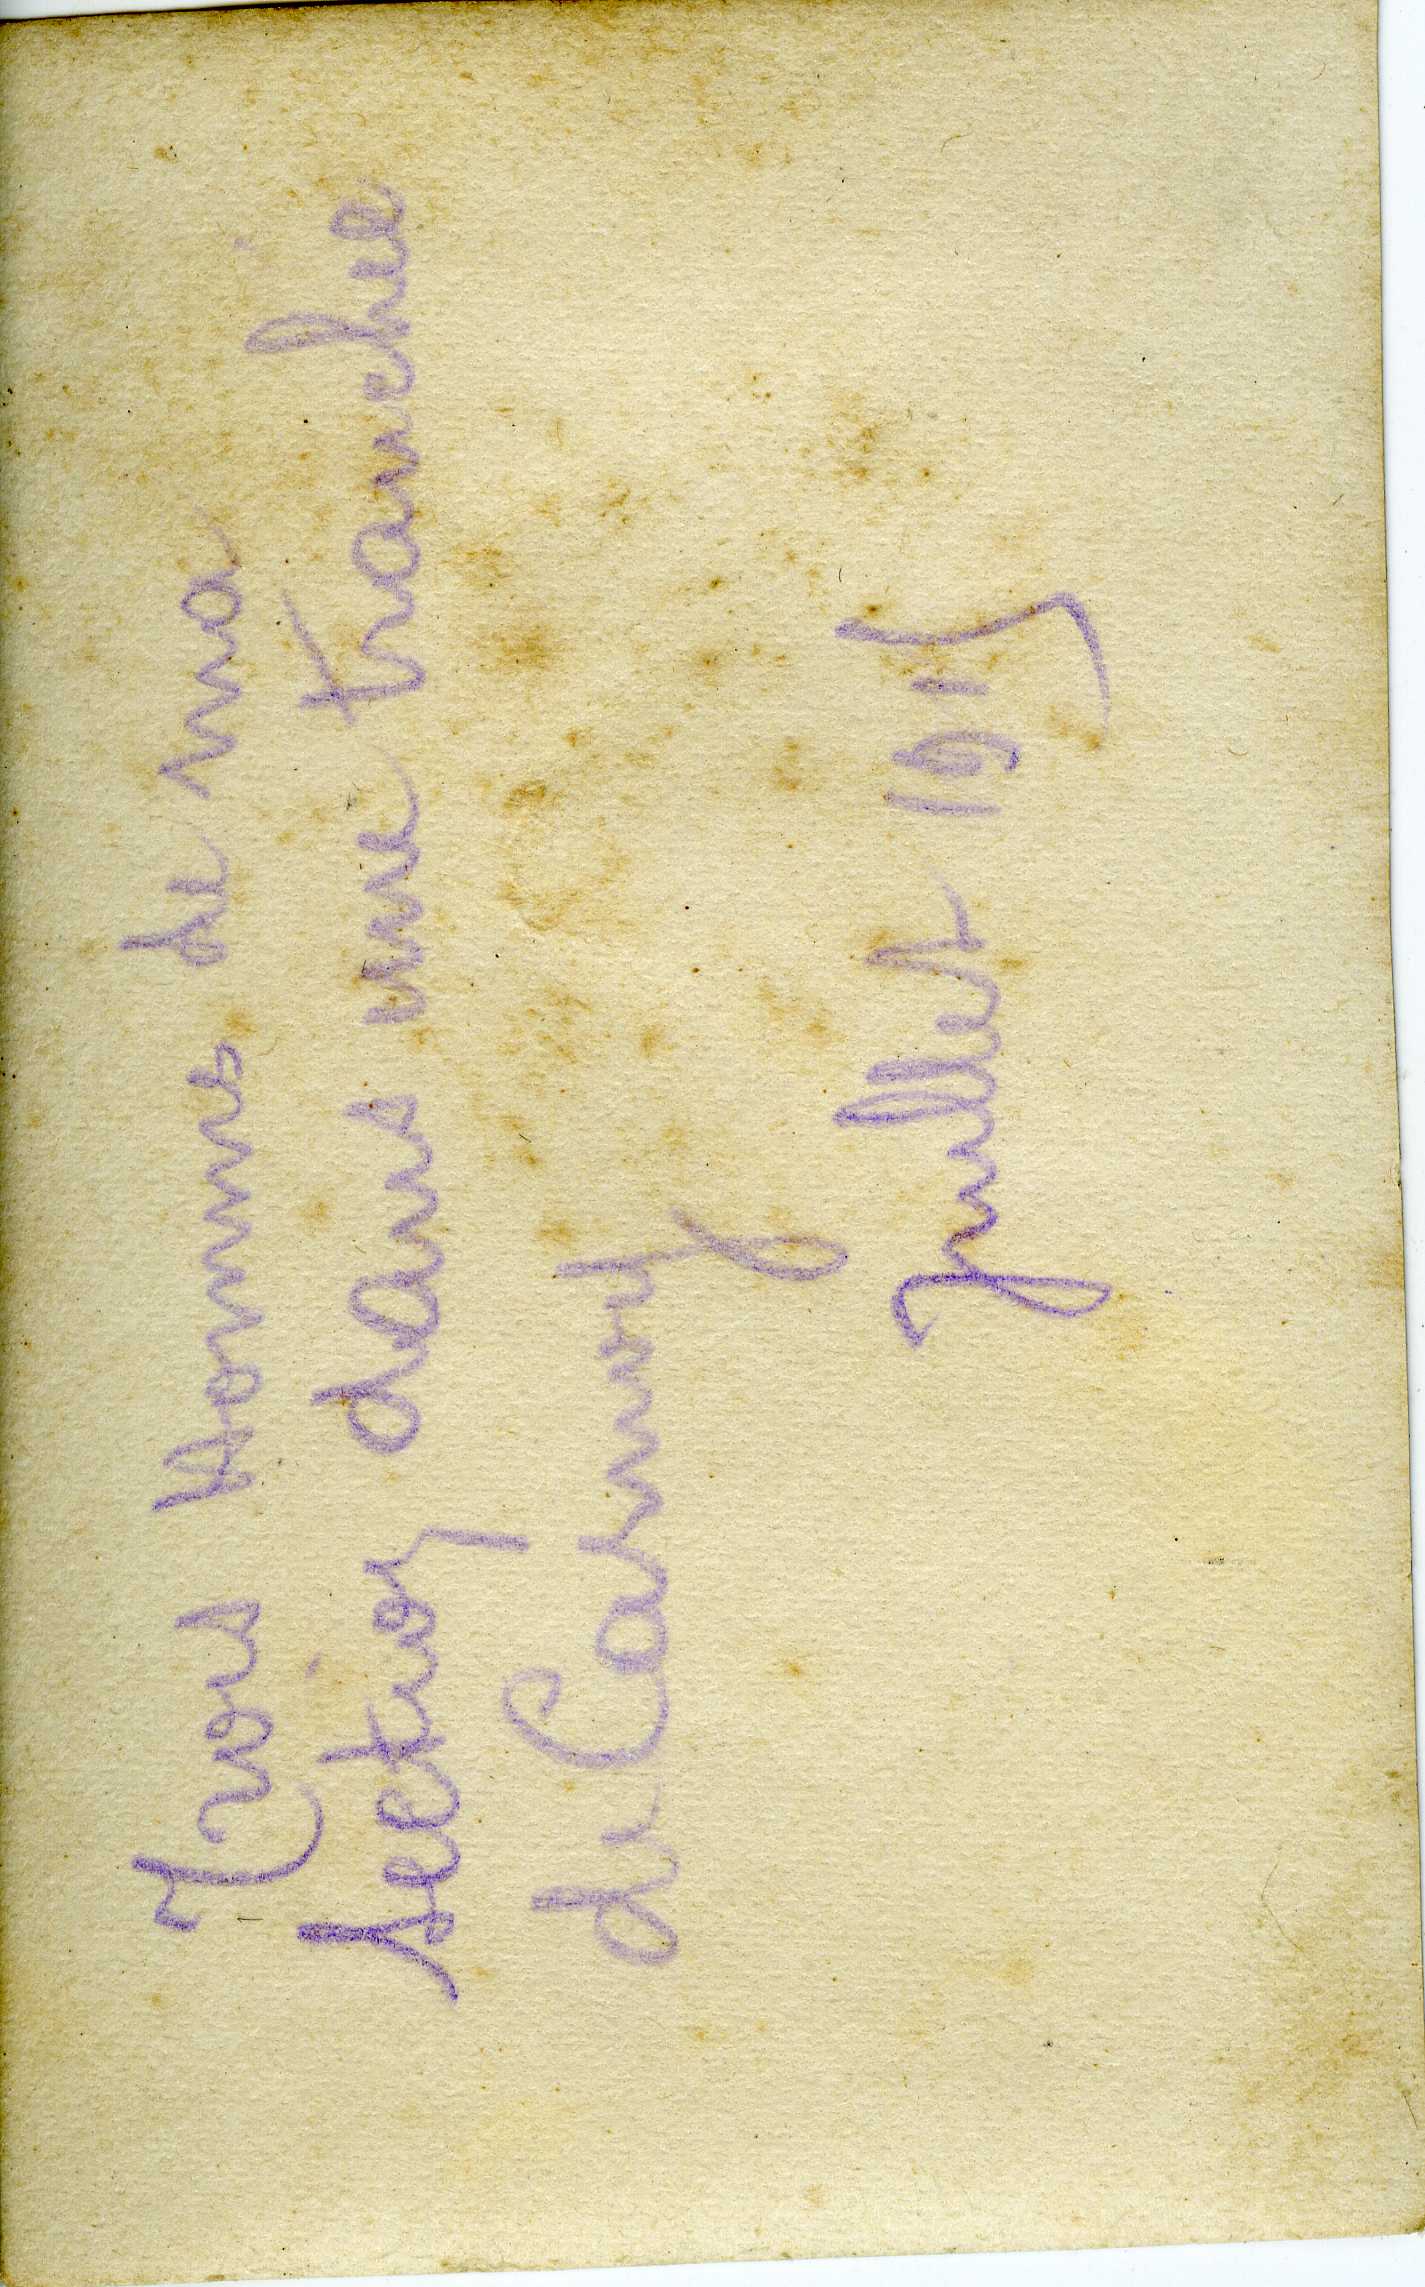 Trois Hommes de ma
section dans une tranchée
de Carnoy
Juillet 1915